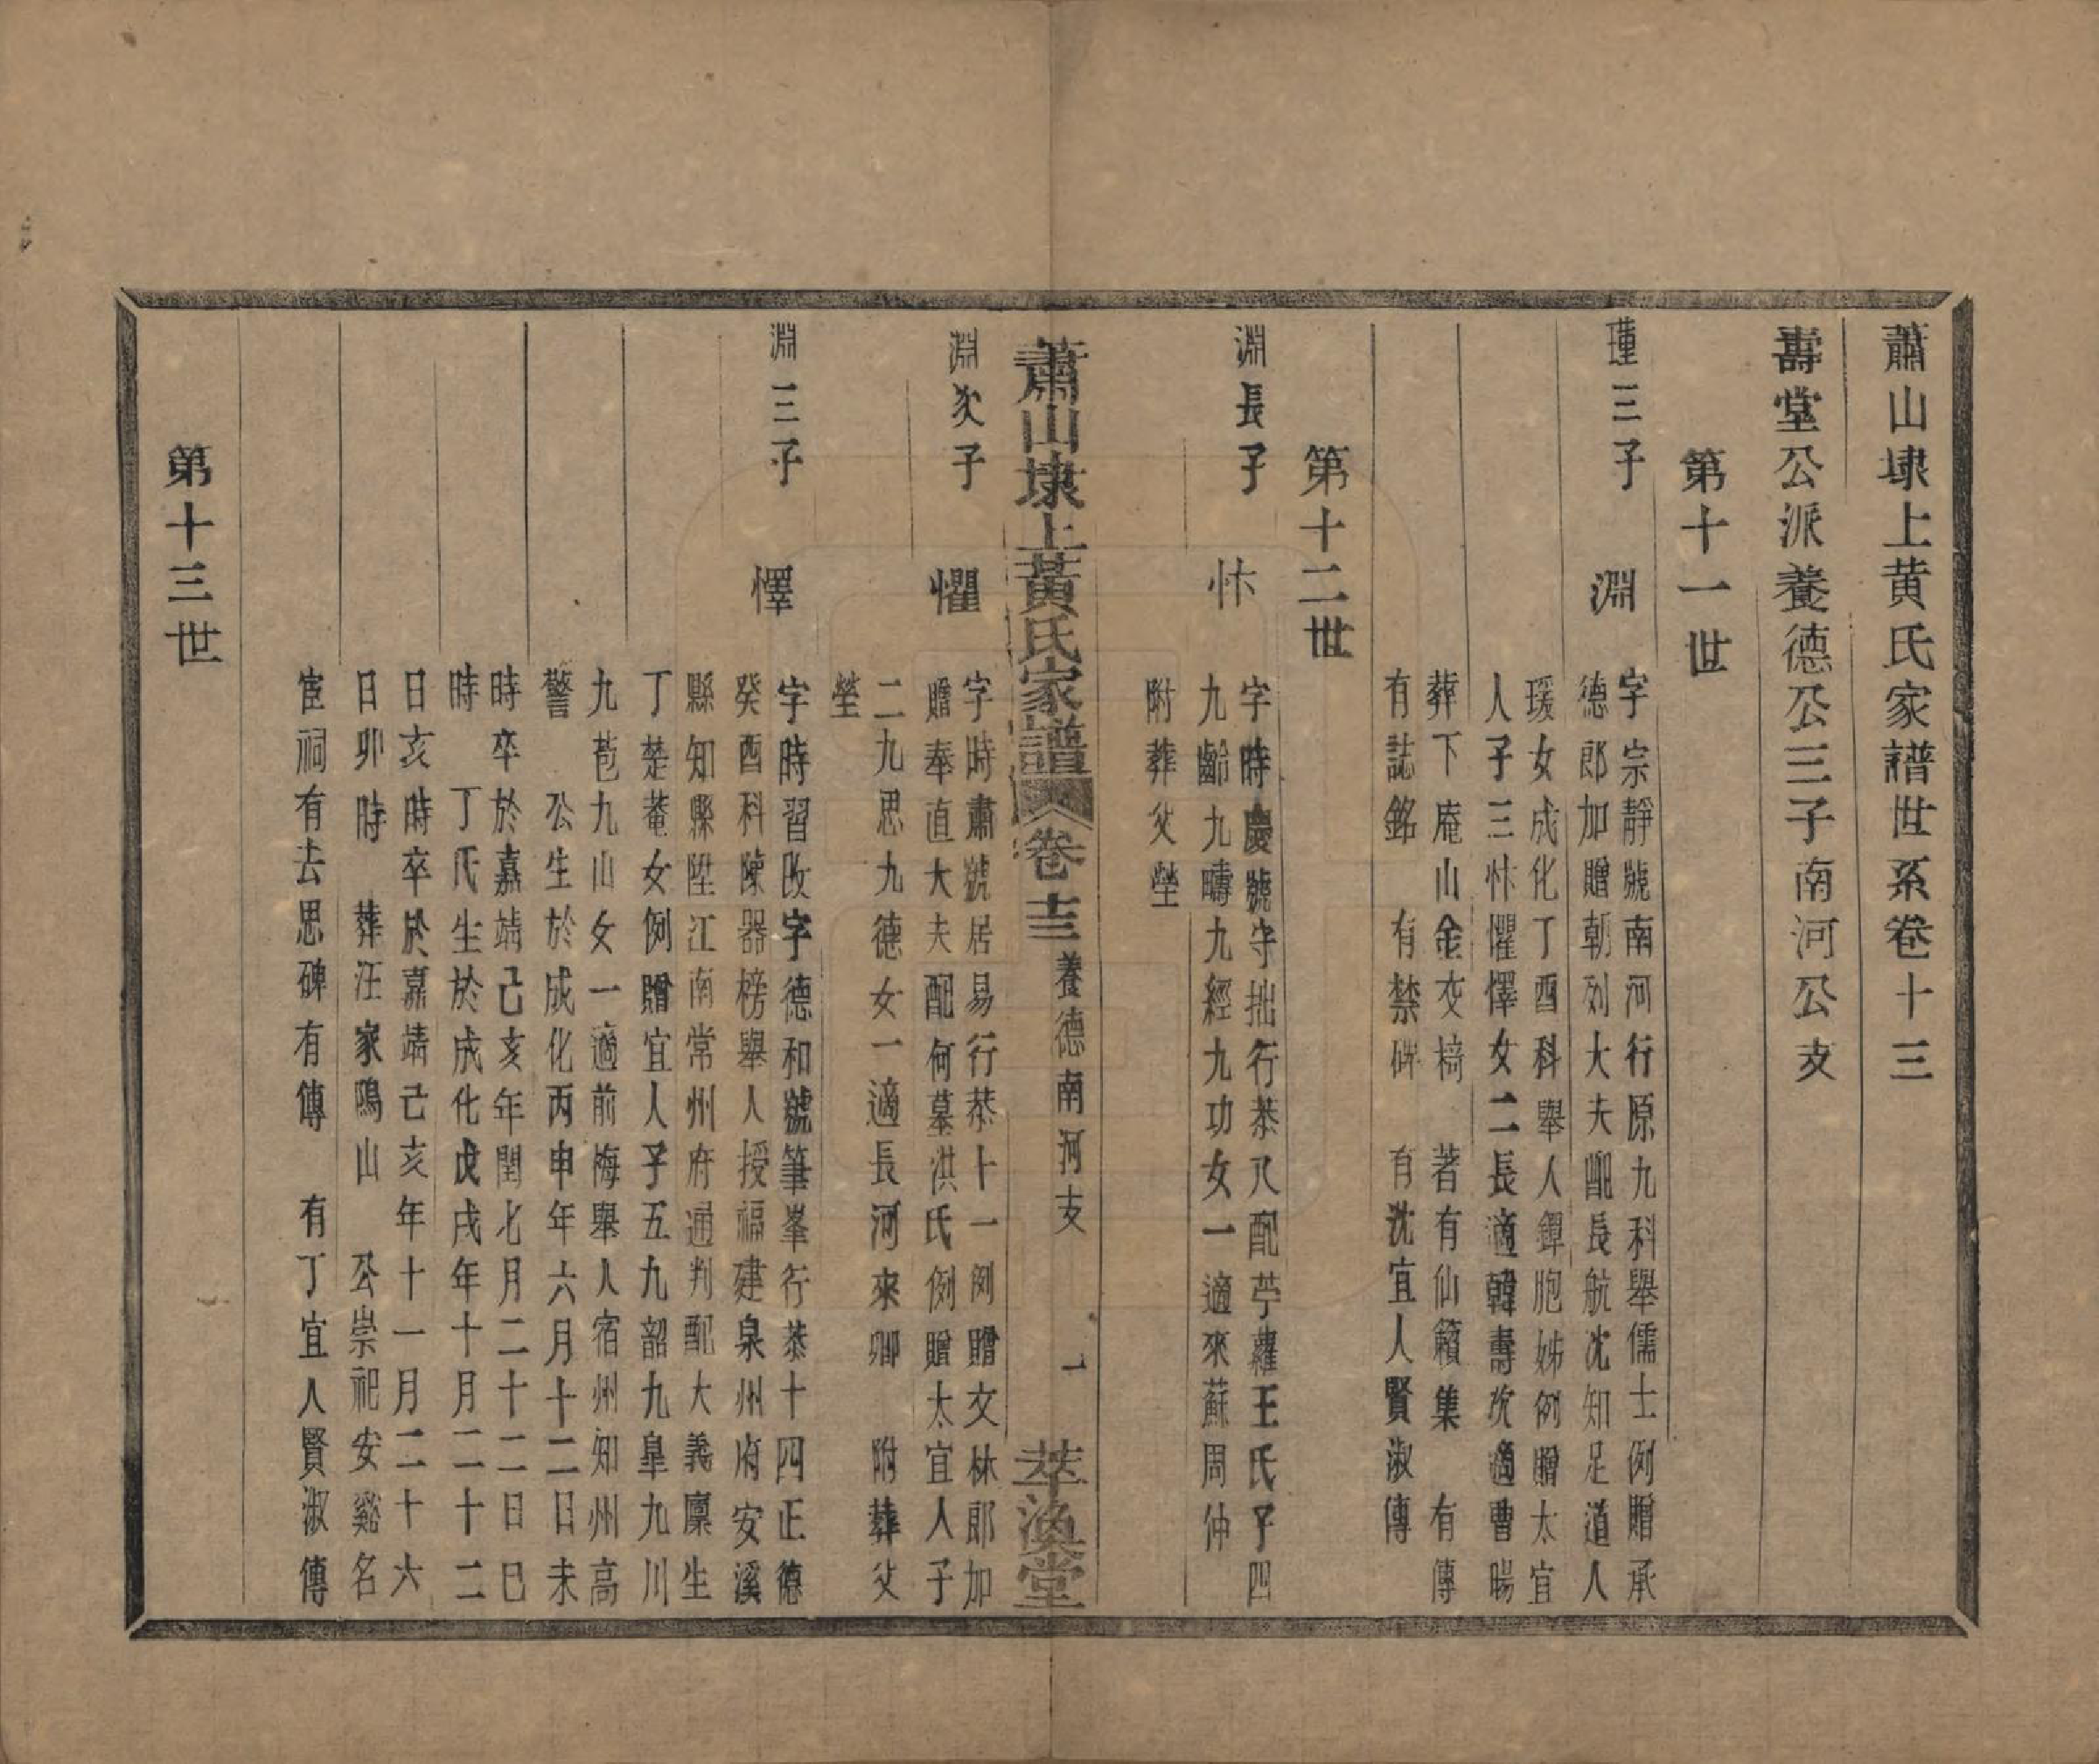 蕭山埭上黄氏家譜世系卷十三
壽堂公派養德公三子南河公支
第十一世
瑾三子
淵
字宗靜號南河行原九科舉儒士例贈承
德郎加贈朝列大夫配長航沈知足道人
瑗女成化丁酉科舉人鐸胞姊例贈太宜
人子三忭懼懌女二長適韓壽次適曹暘
葬下庵山金交椅　著有仙籟集　有傳
有誌銘　有禁碑　有沈宜人賢淑傳
第十二世
淵長子
忭
字時慶號守拙行恭八配苧蘿王氏子四
九齡九疇九經九功女一適來蘇周仲
附葬父塋
蕭山埭上黃氏家譜
卷十三
養德南河支
一
萃渙堂
淵次子
懼
字時肅號居易行恭十一例贈文林郎加
贈奉直大夫配何墓洪氏例贈太宜人子
二九思九德女一適長河來卿　附葬父
塋
淵三子
懌
字時習改字德和號筆峯行恭十四正德
癸酉科陳器榜舉人授福建泉州府安溪
縣知縣陞江南常州府通判配大義廩生
丁楚菴女例贈宜人子五九韶九皐九川
九苞九山女一適前梅舉人宿州知州高
警　公生於成化丙申年六月十二日未
時卒於嘉靖己亥年閏七月二十二日巳
時　丁氏生於成化戊戌年十月二十二
日亥時卒於嘉靖己亥年十一月二十六
日卯時　葬汪家鴫山　公崇祀安谿名
宦祠有去思碑有傳　有丁宜人賢淑傳
第十三世